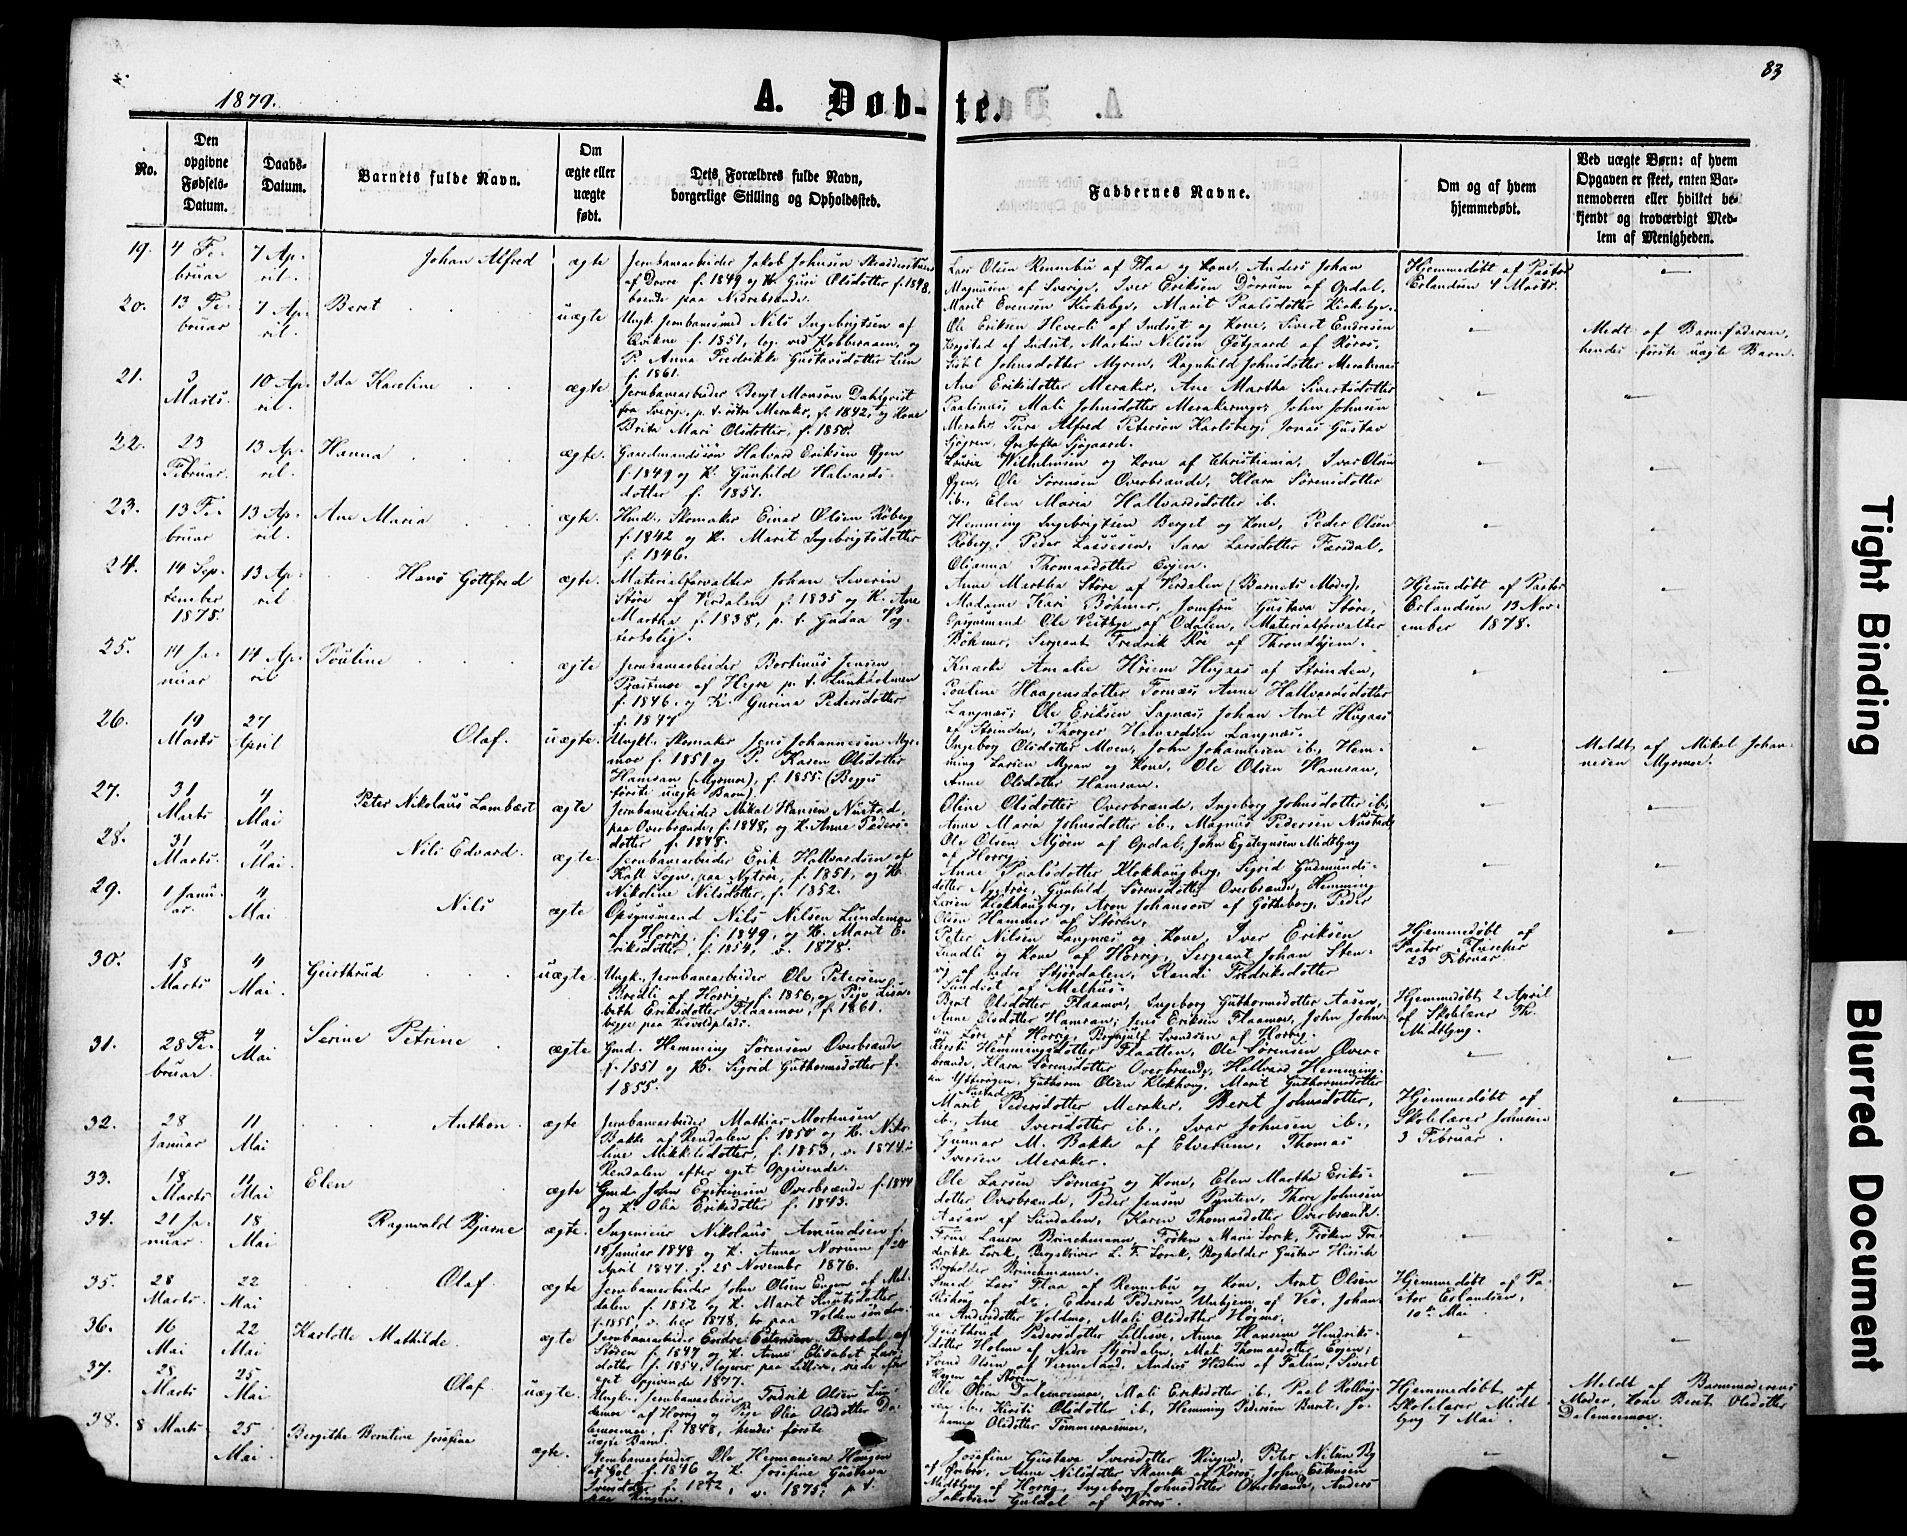 83
1879.
A. Døb-te.
No.
Den opgivne Fødsels-Datum.
Daabs-Datum.
Barnets fulde Navn.
Om ægte eller uægte født.
Dets Forældres fulde Navn, borgerlige Stilling og Opholdssted.
Faddernes Navne.
Om og af hvem hjemmedøbt.
Ved uægte Børn: af hvem Opgaven er skeet, enten Barnemoderen eller hvilket bekjendt og troværdigt Medlem af Menigheden.
19. 4 Februar 7 April Johan Alfred ægte
Jernbanearbeider Jakob Johnsen
af Dovre f. 1849 og K. Guri Olsdotter f. 1848,
boende paa Nedrebrænde.
Lars Olsen Rennebu af Flaa og Kone, Anders Johan
Magnusen af Sverige, Iver Eriksen Dørrum af Opdal,
Marit Evensen Kirkebye, Marit Paalsdotter Kirkebye.
Hjemmedøbt af Pastor
Erlandsen 4 Marts.
20. 13 Februar 7 April Beret uægte
Ungk. Jernbanesmed Nils Ingebrigtsen af
P. Anna Fredrikke Gustavsdotter
f. 1861.
Ole Eriksen Heverli af Indset og Kone, Sivert Endresen
af Indset, Martin Nilsen Østgaard af Røros,
Johnsdotter Myren, Ragnhild Johnsdotter
Meldt af Barnefaderen,
hendes første uægte Barn.
21. 3 Marts. 10 April. Ida Karoline ægte
Jernbanearbeider Bengt Monsøn Dahlqvist
fra Sverige, p. t. Meraker, f. 1842, og Kone
Brita Mari Olsdotter, f. 1850.
Ane Eriksdotter Meraker, Ane Martha Sivertsdotter
Mali Johnsdotter John Johnsen
Meraker, Ture Alfred Peterson Karlsberg, Jonas Gustav
Sjøgren, Sjøgaard.
22. 23 Februar. 13 April. Hanna ægte.
Gaardmandssøn Halvard Eriksen Øyen
f. 1849 og K. Gunhild Halvards-
dotter f. 1851.
Wilhelmsen og Kone af Christiania, Ivar Olsen
Øyen, Ole Sørensen Overbrænde, Klara Sørensdotter
ib., Elen Maria Hallvardsdotter ib.
23. 13 Februar 13 April. Ane Maria ægte.
Hmd., Skomaker Einar Olsen Røberg
f. 1842 og K. Marit Ingebrigtsdotter
f. 1846.
Hemming Ingebrigtsen Berget og Kone, Peder Olsen
Røberg, Peder Lassesen, Sara Larsdotter
Olianna Thomasdotter Eyen.
24. 14 September 1878. 13 April. Hans Gottfred ægte.
Materialforvalter Johan Severin
Støre af Verdalen f. 1835 og K. Ane
Martha f. 1838, p. t. Gudaa
Ane Martha Støre af Verdalen (Barnets Moder),
Madame Kari Böhmer, Jomfru Gustava Støre,
Ole Veitbye af Odalen, Materialforvalter
Böhmer, Sergeant Fredrik Roe af Throndhjem.
Hjemmedøbt af Pastor
Erlandsen 13 Nov-
ember 1878.
25. 14 Januar 14 April Pouline ægte
Jernbanearbeider Jensen
af Hegre p. t.
f. 1846. og K. Gurina Pedersdotter
f. 1847
Amalie af Strinden,
Pouline Haagensdotter Fornæs, Anne Hallvardsdotter
Langnæs, Ole Eriksen Johan Arnt
af Strinden, Thorger Halvardsen Langnæs.
26. 19 Marts 27 April Olaf. uægte.
Ungkl. Skomaker Jens Johannesen Myr-
moe f. 1851 og P. Karen Olsdotter
Hamsan (Myrmoe), f. 1855. (Begges
første uægte Barn).
Ingebog Olsdotter Moen, John Johannesen ib., Hem-
ming Larsen Myran og Kone, Ole Olsen Hamsan,
Anne Olsdotter Hamsan.
Meldt af Mikal Johan-
nesen Myrmoe.
27. 31 Marts 4 Mai Peter Nikolaus Lambert ægte
Jernbanearbeider Mikal Hansen Nustad,
paa Overbrænde, f. 1848, og K. Anne Peders-
dotter f. 1848.
Oline Olsdotter Overbrænde, Ingeborg Johnsdotter ib.,
Anne Maria Johnsdotter ib., Magnus Pedersen Nustad
28. 31 Marts. 4 Mai. Nils Edvard. ægte.
Jernbanearbeider Erik Hallvardsen af
paa Nytrøe, f. 1851, og K.
Nikoline Nilsdotter, f. 1852.
Ole Olsen Mjøen af Opdal, John Midtbyg
af Horrig
Anne Paalsdotter Klokhougberg, Sigrid Gudmunds-
dotter Nytrøe, Gunhild Sørensdotter Overbrænde, Hemming
29. 1 Januar. 4 Mai Nils ægte
Opsynsmand Nils Nilsen Lundemoe
af Horrig f. 1849, og K. Marit E-
riksdotter, f. 1854, v. 1878.
Larsen Klokhougberg, Aron Johanson af Gøtheborg, Peder
Olsen Hammer af Støren,
Peter Nilsen Langnæs og Kone, Iver Eriksen
Lundli og Kone af Horrig, Sergeant Johan Sten-
Hjemmedøbt af
Pastor Fleischer
23 Februar.
30. 18 Marts 4 Mai. Geirthrud uægte.
Ungk. Jernbanearbeider Ole Petersen
Bredli af Horrig, f. 1856, og Pige Lisa-
beth Eriksdotter Flaaemoe, f. 1861.
begge paa Kvoldplads.
Berit Olsdotter Flaamoe, Ingeborg Guthormsdotter Aasen,
Anne Olsdotter Hamsan, Jens Eriksen Flaamoe, John John-
Hjemmedøbt 2 April
af Skolelærer Th.
Midtbyg.
31. 28 Februar. 4 Mai Serine Petrine ægte
Gmd. Hemming Sørensen Overbrænde
f. 1851 og K. Sigrid Guthormsdotter f.
1855.
Kirsti Hemmingsdotter Flaatten, Ole Sørensen Over-
brænde, Klara Sørensdotter Overbrænde, Hallvard Hemming-
Guthorm Olsen Klokhoug, Marit Guthormsdotter
Nustad.
32. 28 Januar 11 Mai Anthon. ægte
Jernbanearbeider Mathias Mortensen
Bakke af Rendalen f. 1850 og K. Niko-
line Mikkelsdotter, f. 1853, v. 1874 i
Rendalen efter eget Opgivende.
Marit Pedersdotter Meraker, Berit Johnsdotter,
ib., Ane Iversdotter ib., Ivar Johnsen ib.,
Gunnar M. Bakke af Elverum, Thomas
Iversen Meraker.
Hjemmedøbt af
Skolelærer Johnsen
3 Februar.
33. 18 Marts 11 Mai Elen ægte
Gmd. John Overbrænde f. 1844
og K. Olia Eriksdotter f. 1843.
Ole Larsen Sørnæs og Kone, Elen Martha Eriks-
dotter Overbrænde, Peder Jensen Thore Johnsen
Aasan af Sundalen, Karen Thomasdotter Overbrænde.
34. 21 Januar. 18 Mai Ragnvald Bjarne ægte.
Ingenieur Nikolaus Amundsen f.
18 Januar 1848 og K. Anna Norum f. 20
April 1847. g. 25 November 1876.
Frue Laura Brinchmann, Frøken Marie Lorck, Frøken Fre-
derikke Lorck, Bergskriver L. F. Lorck, Bogholder Gustav Hirsch
Bogholder Brinchmann.
35. 28 Marts. 22 Mai Olaf. ægte.
Jernbanearbeider John Olsen Engen af Mel-
dalen f. 1852 og K. Marit Knutsdotter
f. 1855, v. her 1878, bo paa Volden
Smed Lars Flaa af Rennebu og Kone, Arnt Olsen
af do., Edvard Pedersen af Veø, Johan-
na Andersdotter Volding, Mali Olsdotter
Hjemmedøbt af Pa-
stor Erlandsen,
10de Mai.
36. 16 Mai 22 Mai Karlotte Mathilde. ægte
Jernbanearbeider Endre Estensen Bordal af
Støren f. 1847 og K. Anne Elisabet Lars-
dotter f. 1854, logerer paa Lillive,
eget Opgivende 1877.
Geirthrud Pedersdotter Lillivve, Anna Hansen Hendriks-
dotter Holme af Nedre Stjørdalen, Mali Thomasdotter Eyen,
Svend Olsen af Vermeland, Anders Hedlin af Falun, Sivert
af Støren.
37. 28 Marts 25 Mai Olaf uægte.
Ungk., Jernbanearbeider, Fredrik Olsen Lun-
demoe af Horrig og Pige Olia Olsdotter Da-
lemoemoe, f. 1848, hendes første
uægte Barn.
Ole Olsen Dalemoemoe, Mali Eriksdotter ib., Paal
ib., Kirsti Olsdotter ib., Hemming Pedersen Jo-
hanna Olsdotter Tømmeraasmoe,
Hjemmedøbt af
Skolelærer Midt-
byg 7 Mai.
Meldt af Barnemoderens
Moder, Kone Berit Olsdotter
Dalemoemoe.
38. 8 Marts 25 Mai Bergithe Berntine Josefine ægte.
Jernbanearbeider Ole Hermansen Haugen
af f. 1846 og K. Josefine Gustava
Iversdotter f. 1852, v. 1875, p. t.
paa Ringen.
Josefine Gustava Iversdotter Ringen, Peter Nilsen
af Ørebro, Anne Nilsdotter Skancke af Røros, John Estensen
Midtbyg af Horrig, Ingeborg Johnsdotter Overbrænde, Anders
Jakobsen Guldal af Røros.
Tight Binding
Blurred Document